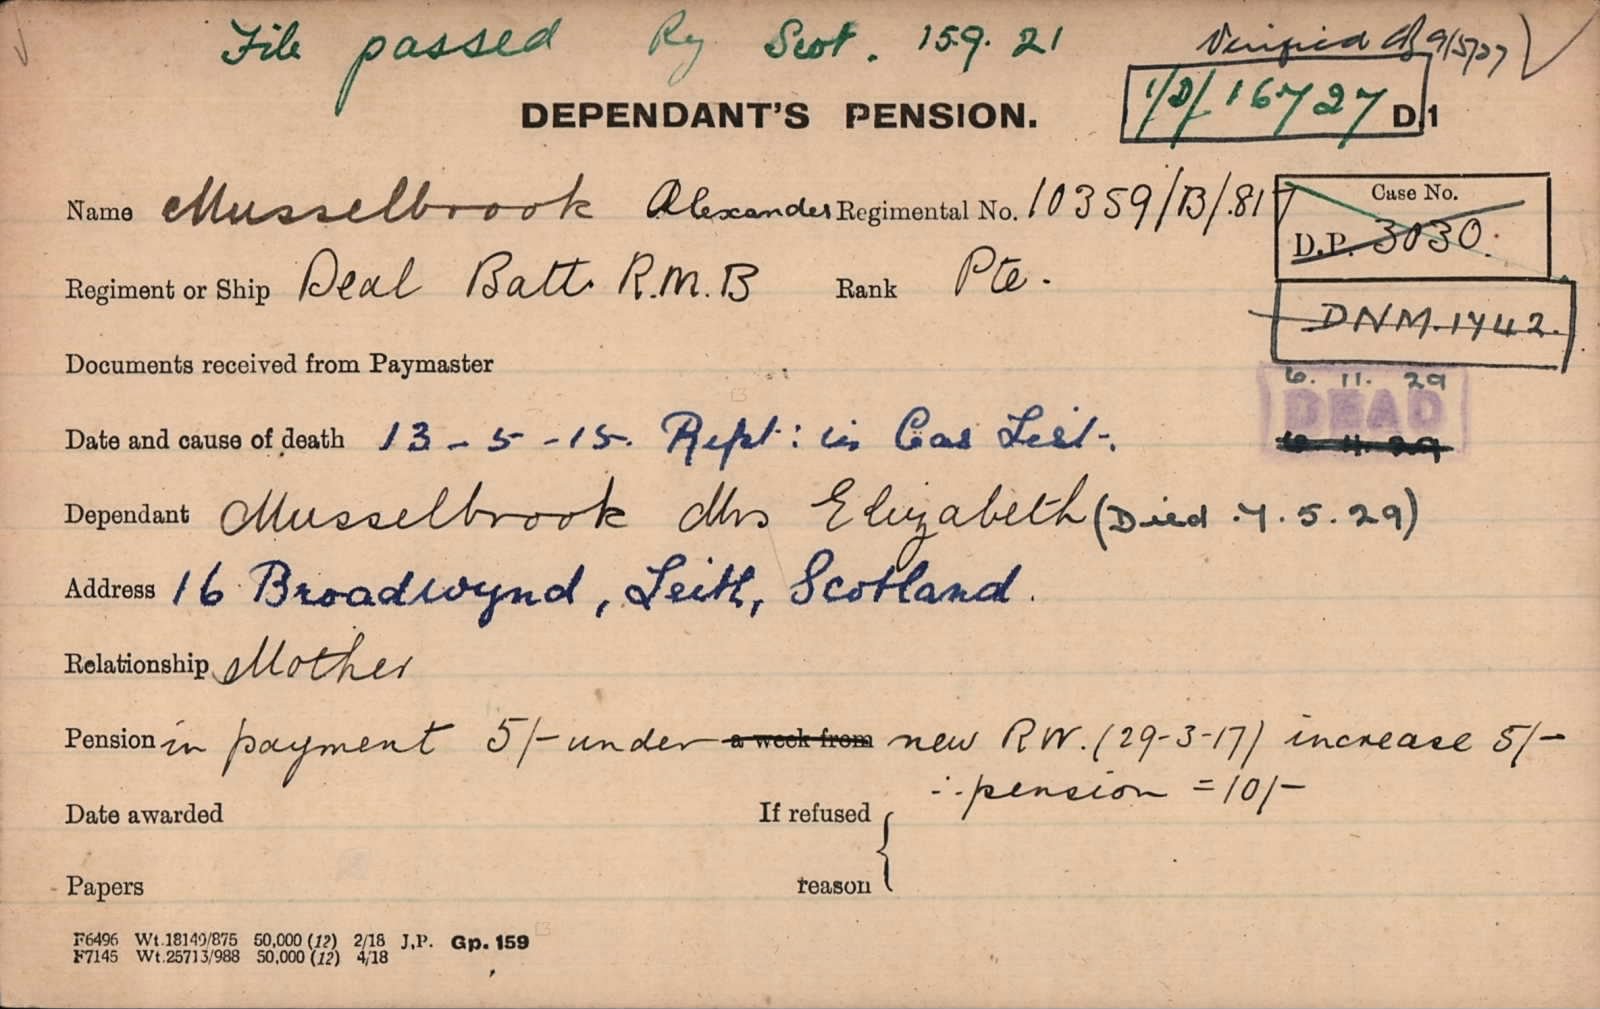 File passed Rg Scot. 15.9.21 Verified 9/5/27
DEPENDANT'S PENSION. 1/D/16727 D.1
Name Musselbrook Alexander Regimental No. 10359/B/.817
Case No.
D.P. 3030.
Regiment or Ship Deal Batt. R.M.B Rank Pte.
DNM.1742.
Documents received from Paymaster
6. 11. 29
DEAD
Date and cause of death 13-5-15. Rept: in Cas List.
6 11 29
Dependant Musselbrook Mrs Elizabeth (Died .7.5.29)
Address 16 Broadwynd, Leith, Scotland.
Relationship Mother
Pension in payment 5/- under a week from new R.W. (29-3-17) increase 5/-
∴ pension = 10/-
Date awarded If refused
Papers reason
F6496 Wt.18149/875 50,000 (12) 2/18 J.P. Gp. 159
F7145 Wt.25713/988 50,000 (12) 4/18